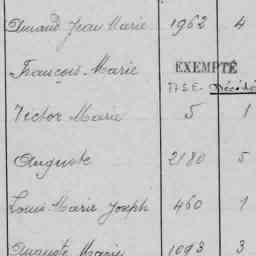 Armand Jean Marie 1962 4
François Marie EXEMPTÉ
Victor Marie 5 1
Auguste 2180 5
Louis Marie Joseph 460 1
Auguste Marie 1093 3